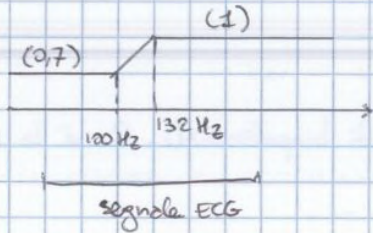 (1)
(0,7)
100 Hz
132 Hz
segnale ECG